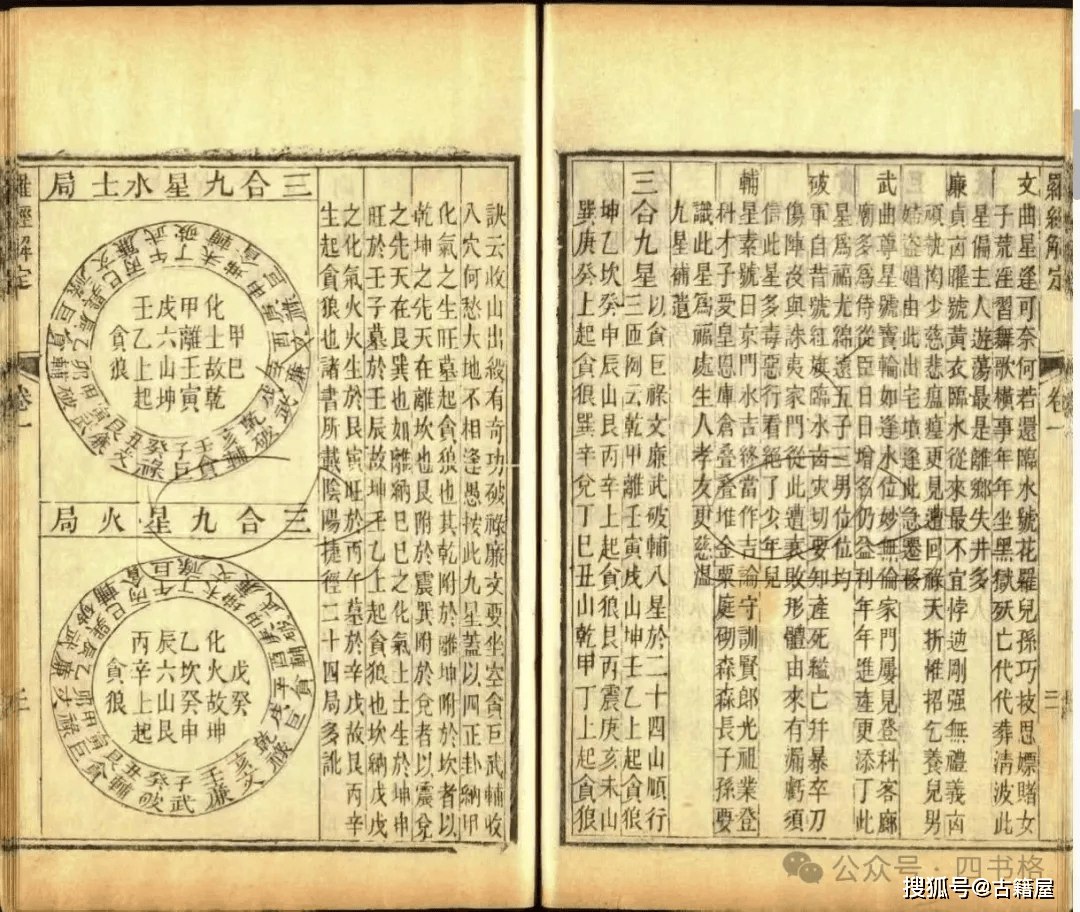 羅經解定
卷一
文曲星逢可奈何若還臨水號花羅兒孫巧技思嫖賭女
子荒淫習舞歌橫事年年坐黑獄殀亡代代葬清波此
星偏主人遊蕩最是離鄉失井多
廉貞凶曜號黃衣臨水從來最不宜悖逆剛强無禮義凶
頑執拘少慈悲瘟𤺺更見遭回祿夭折惟招乞養兒男
盜娼由此出宅墳逢此急遷移
武曲尊星號寶輪如逢水位妙無倫家門屢見登科客廊
廟多爲侍從臣日日增名仍益利年年進產更添丁此
星爲福尤綿遠五子三男位位均
破軍自昔號紅旗臨水凶灾切要知產死縊亡并暴卒刀
傷陣沒與誅夷家門從此遭衰敗形體由來有漏虧須
信此星多毒惡行看絕了少年兒
輔星素號日京門水吉終當作吉論守訓賢郎光祖業登
科才子受皇恩庫倉叠叠堆金粟庭砌森森長子孫要
識此星爲福處生人孝友更慈溫
九星補遺
三合九星以貪巨祿文廉武破輔八星於二十四山順行
三匝例云乾甲離壬寅戌山坤壬乙上起貪狼
坤乙坎癸申辰山艮丙辛上起貪狼艮丙震庚亥未山
巽庚癸上起貪狼巽辛兌丁巳丑山乾甲丁上起貪狼
訣云收山出殺有奇功破祿廉文要坐空貪巨武輔收
入穴何愁大地不相逢愚按此九星蓋以四正卦納甲
化氣之生旺墓起貪狼也其乾附於離坤附於坎者以
乾坤之先天在離坎也艮附於震巽附於兌者以震兌
之先天在艮巽也如離納巳巳之化氣土土生於坤申
旺於壬子墓於壬辰故坤壬乙上起貪狼也坎納戊戊
之化氣火火生於艮寅旺於丙午墓於辛戌故艮丙辛
生起貪狼也諸書所載陰陽捷徑二十四局多訛
三合九星水土局
甲巳
化土故乾
甲離壬寅
戌六山坤
壬乙上起
貪狼
三合九星火局
戊癸
化火故坤
乙坎癸申
辰六山艮
丙辛上起
貪狼
公众号·四书格
搜狐号@古籍屋